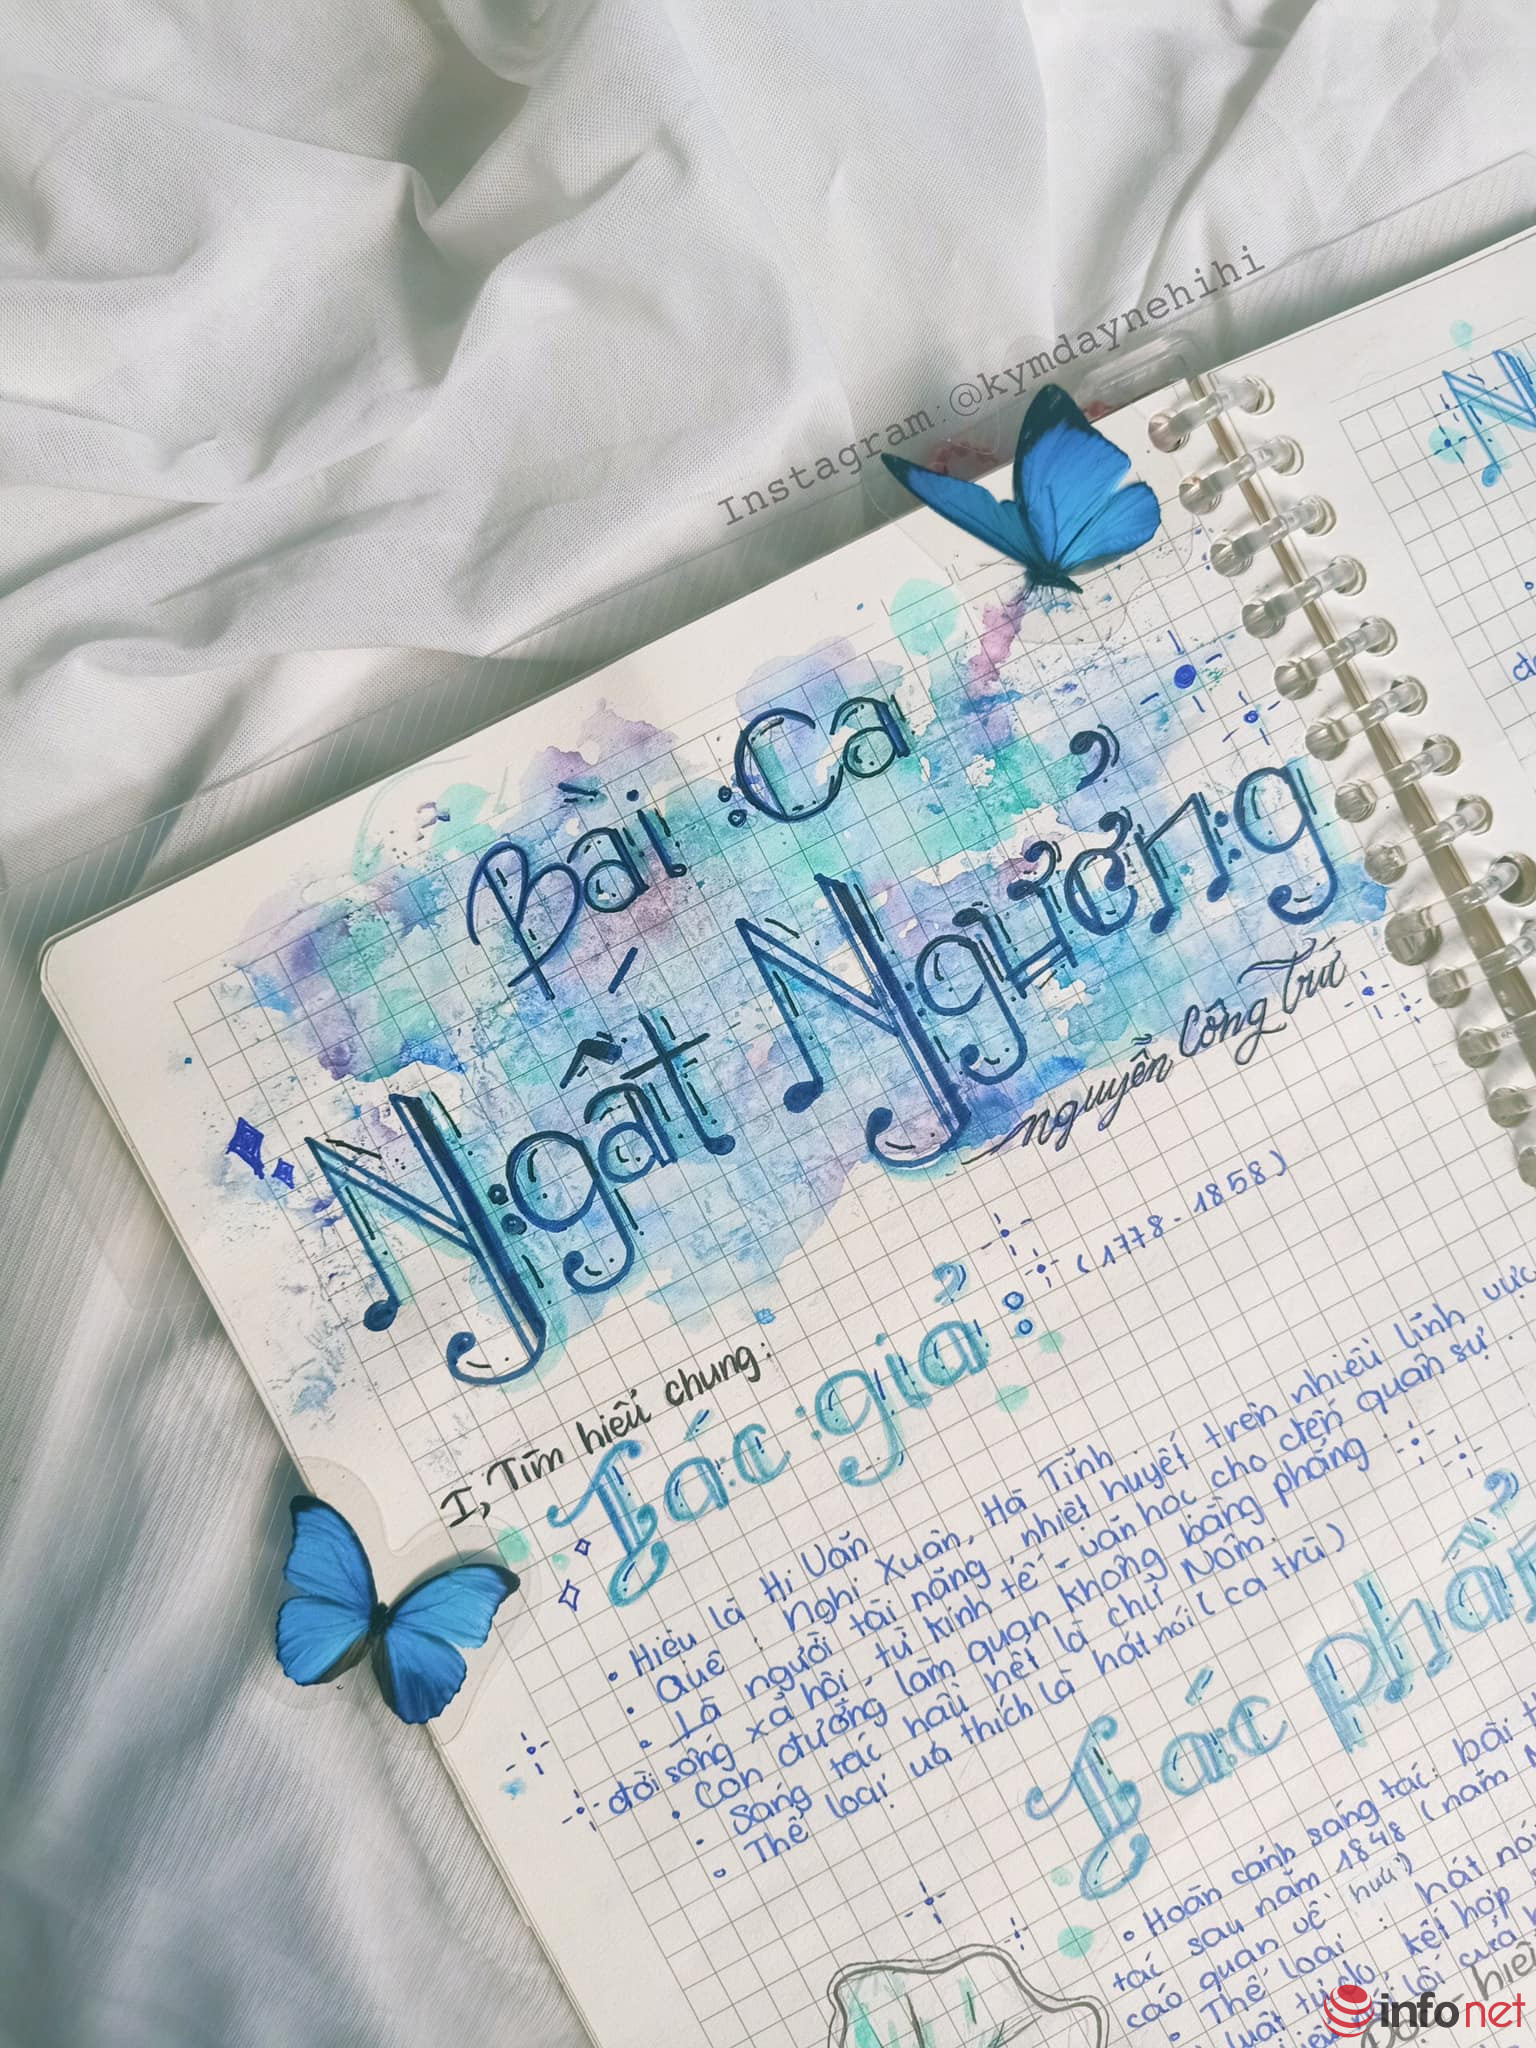 Instagram:@kymdaynehihi
Bài Ca
Ngất Ngưởng
Nguyễn Công Trứ
I, Tìm hiểu chung:
Tác giả: (1778-1858)
• Hiệu là Hi Văn
• Quê: Nghi Xuân, Hà Tĩnh
• Là người tài năng, nhiệt huyết trên nhiều lĩnh vực
đời sống xã hội, từ kinh tế - văn hóa cho đến quân sự.
• Con đường làm quan không bằng phẳng
• Sáng tác hầu hết là chữ Nôm.
• Thể loại ưa thích là hát nói (ca trù)
Tác phẩ
• Hoàn cảnh sáng tác: bài
tác sau năm 1848 (năm
cáo quan về hưu)
• Thể loại: hát nói
luật tự do, kết hợp
infonet